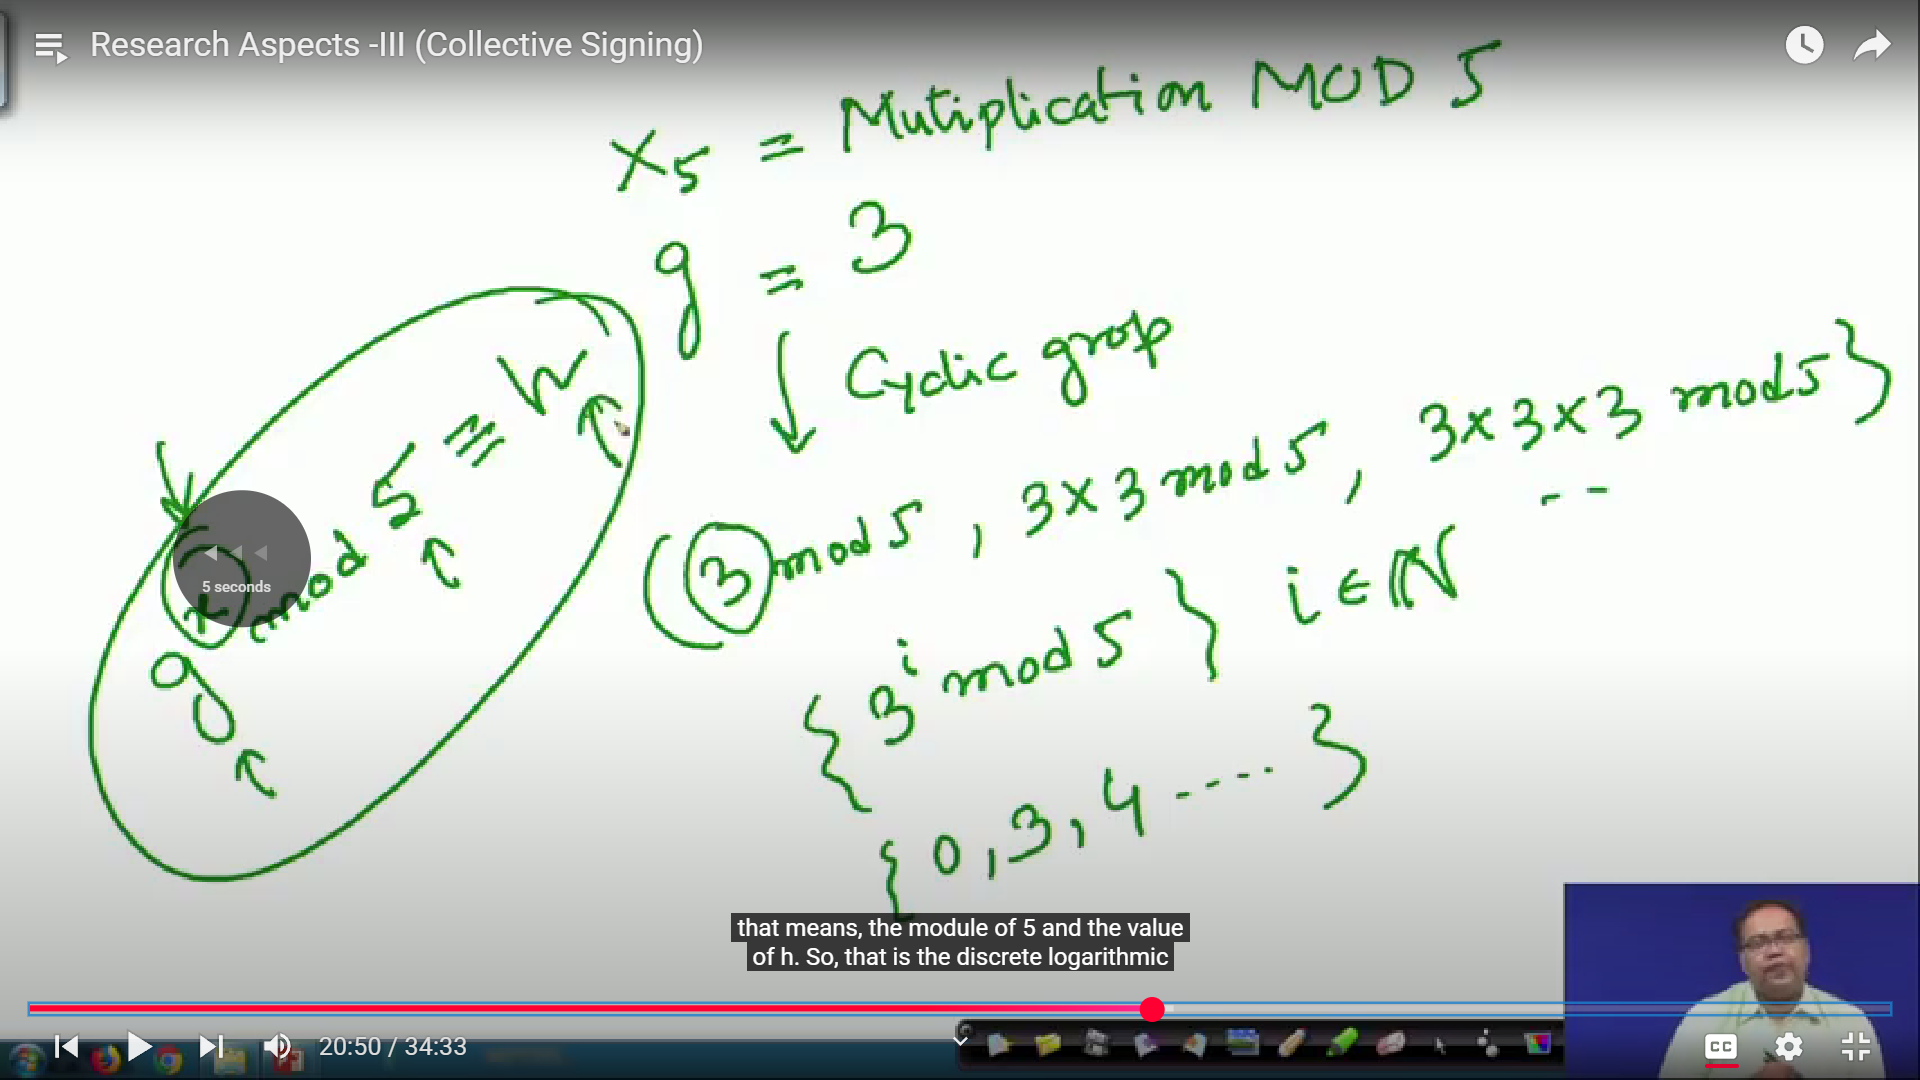 Research Aspects -III (Collective Signing)
X5 = Mutiplication MOD 5
g = 3
Cyclic grop
(3 mod 5, 3x3 mod 5, 3x3x3 mod 5}
--
{3^i mod 5} i ∈ N
{0, 3, 4 ....}
g^x mod 5 ≡ h
5 seconds
that means, the module of 5 and the value
of h. So, that is the discrete logarithmic
20:50 / 34:33
CC